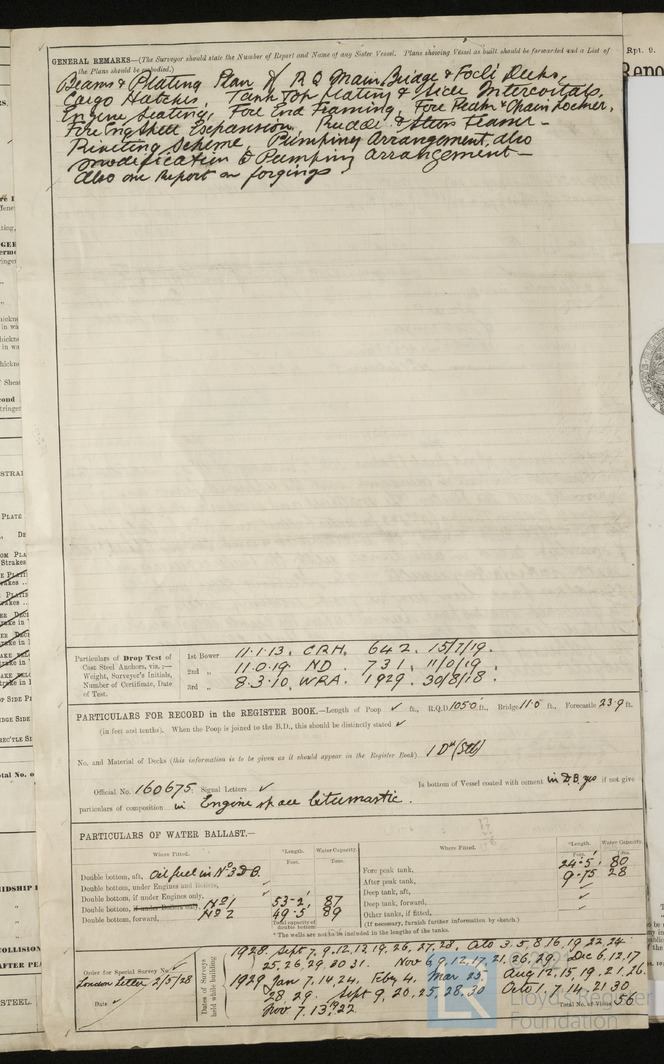 GENERAL REMARKS—(The Surveyor should state the Number of Report and Name of any Sister Vessel. Plans showing Vessel as built should be forwarded and a List of
the Plans should be embodied.)
Beams & Plating Plan of R Q Main Bridge & Focsl Decks,
Cargo Hatches, Tank Top Plating & Side Intercostals,
Engine Seating, Fore End Framing, Fore Peak & Chain Locker,
Fore End Shell Expansion, Rudder & Stern Frame -
Riveting Scheme, Pumping Arrangement, also
modification to Pumping arrangement -
also one Report on forgings
Particulars of Drop Test of
Cast Steel Anchors, viz. :—
Weight, Surveyor's Initials,
Number of Certificate, Date
of Test.
1st Bower 11.1.13. CRH. 642. 15/7/19.
2nd „ 11.0.19 ND. 731. 11/0/19.
3rd „ 8.3.10. WRA. 1929. 30/8/18.
PARTICULARS FOR RECORD in the REGISTER BOOK.—Length of Poop ✓ ft., R.Q.D 105.0 ft., Bridge 11.0 ft., Forecastle 23.9 ft.
(in feet and tenths). When the Poop is joined to the B.D., this should be distinctly stated ✓
No. and Material of Decks (this information is to be given as it should appear in the Register Book) 1 Dk (Stl)
Official No. 160675. Signal Letters ✓ Is bottom of Vessel coated with cement in D.B. yes if not give
particulars of composition in Engine space bitumastic.
PARTICULARS OF WATER BALLAST.—
Where Fitted. *Length. Water Capacity. Where Fitted. *Length. Water Capacity.
Feet. Tons. Feet. Tons.
Double bottom, aft, Oil fuel in No 3 D.B. Fore peak tank, 24.5 80
Double bottom, under Engines and Boilers, ✓ After peak tank, 9.75 28
Double bottom, if under Engines only, ✓ Deep tank, aft, ✓
Double bottom, if under Boilers only, No 1 53.2 87 Deep tank, forward, ✓
Double bottom, forward, No 2 49.5 89 Other tanks, if fitted, ✓
Total capacity of double bottom (If necessary, furnish further information by sketch.)
* The wells are not to be included in the lengths of the tanks.
Order for Special Survey No. ✓
London Letter 2/5/28
Date ✓
Dates of Surveys held while building
1928. Sept 7, 9, 12, 13, 19, 26, 27, 28, Octo 3. 5, 8, 16, 19, 22, 24
25, 26, 29, 30 31. Nov 6, 9, 12, 17, 21, 26, 29, Dec 6, 12, 17
1929 Jan 7, 14, 24, Feby 4, Mar 25, Aug 12, 15, 19, 21, 26,
28, 29. Sept 9, 20, 25, 28, 30 Octo 1, 7, 14, 21, 30
Nov 7, 13, 19, 22 Total No. of Visits 56
Lloyd's Register
Foundation
Rpt. 9.